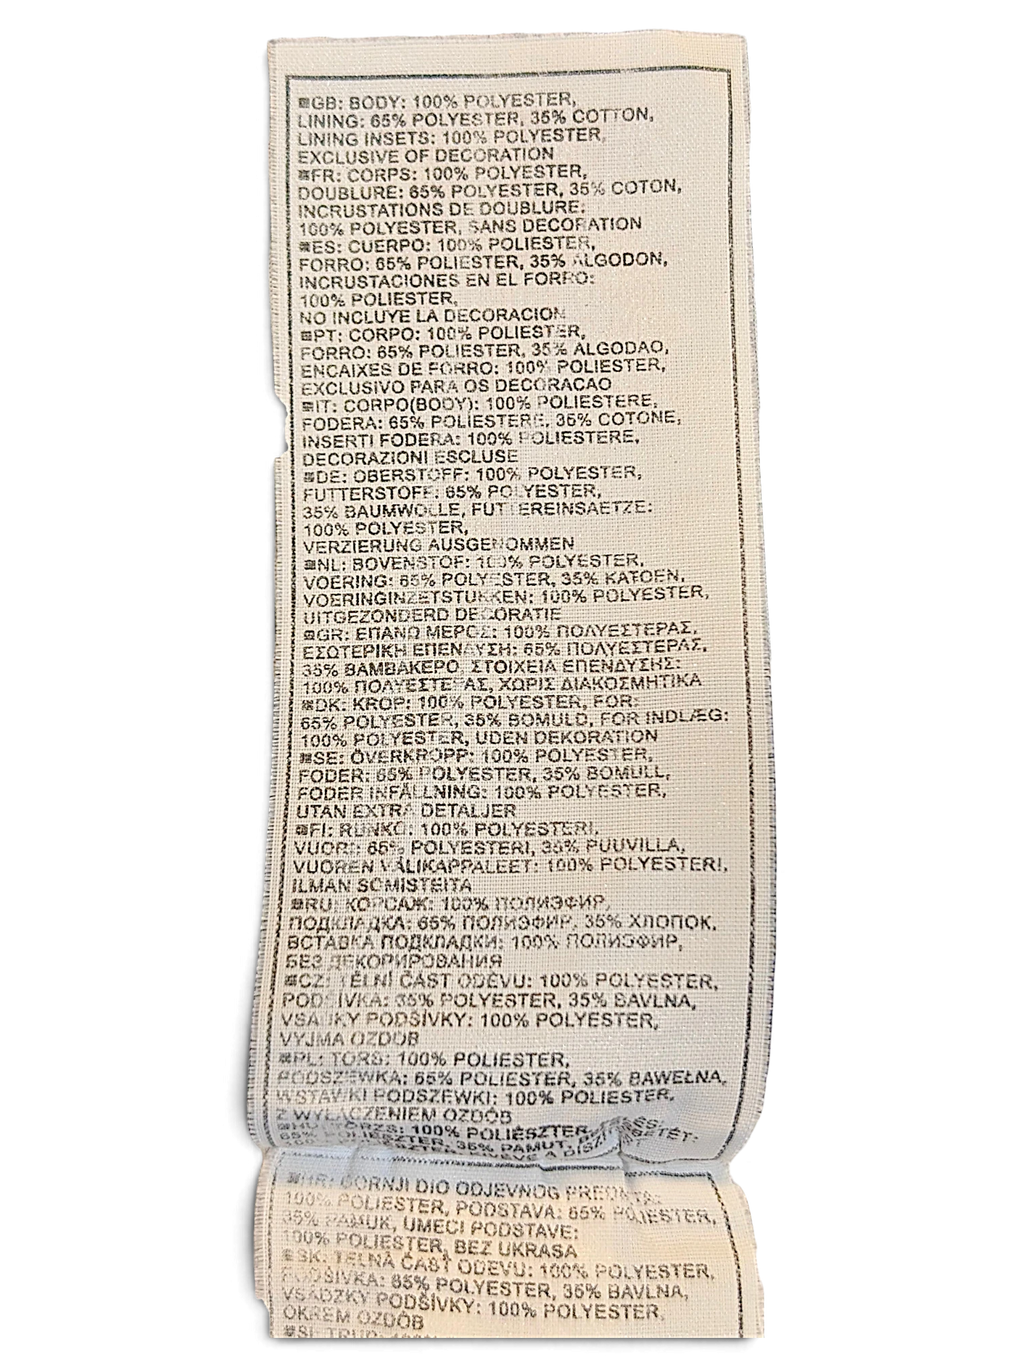 GB: BODY: 100% POLYESTER,
LINING: 65% POLYESTER, 35% COTTON,
LINING INSETS: 100% POLYESTER,
EXCLUSIVE OF DECORATION
FR: CORPS: 100% POLYESTER,
DOUBLURE: 65% POLYESTER, 35% COTON,
INCRUSTATIONS DE DOUBLURE:
100% POLYESTER, SANS DECORATION
ES: CUERPO: 100% POLIESTER,
FORRO: 65% POLIESTER, 35% ALGODON,
INCRUSTACIONES EN EL FORRO:
100% POLIESTER,
NO INCLUYE LA DECORACION
PT: CORPO: 100% POLIESTER,
FORRO: 65% POLIESTER, 35% ALGODAO,
ENCAIXES DE FORRO: 100% POLIESTER,
EXCLUSIVO PARA OS DECORACAO
IT: CORPO(BODY): 100% POLIESTERE,
FODERA: 65% POLIESTERE, 35% COTONE,
INSERTI FODERA: 100% POLIESTERE,
DECORAZIONI ESCLUSE
DE: OBERSTOFF: 100% POLYESTER,
FUTTERSTOFF: 65% POLYESTER,
35% BAUMWOLLE, FUTTEREINSAETZE:
100% POLYESTER,
VERZIERUNG AUSGENOMMEN
NL: BOVENSTOF: 100% POLYESTER,
VOERING: 65% POLYESTER, 35% KATOEN,
VOERINGINZETSTUKKEN: 100% POLYESTER,
UITGEZONDERD DECORATIE
GR: ΕΠΑΝΩ ΜΕΡΟΣ: 100% ΠΟΛΥΕΣΤΕΡΑΣ,
ΕΣΩΤΕΡΙΚΗ ΕΠΕΝΔΥΣΗ: 65% ΠΟΛΥΕΣΤΕΡΑΣ,
35% ΒΑΜΒΑΚΕΡΟ, ΣΤΟΙΧΕΙΑ ΕΠΕΝΔΥΣΗΣ:
100% ΠΟΛΥΕΣΤΕΡΑΣ, ΧΩΡΙΣ ΔΙΑΚΟΣΜΗΤΙΚΑ
DK: KROP: 100% POLYESTER, FOR:
65% POLYESTER, 35% BOMULD, FOR INDLÆG:
100% POLYESTER, UDEN DEKORATION
SE: ÖVERKROPP: 100% POLYESTER,
FODER: 65% POLYESTER, 35% BOMULL,
FODER INFÄLLNING: 100% POLYESTER,
UTAN EXTRA DETALJER
FI: RUNKO: 100% POLYESTERI,
VUORI: 65% POLYESTERI, 35% PUUVILLA,
VUOREN VÄLIKAPPALEET: 100% POLYESTERI,
ILMAN SOMISTEITA
RU: КОРСАЖ: 100% ПОЛИЭФИР,
ПОДКЛАДКА: 65% ПОЛИЭФИР, 35% ХЛОПОК,
ВСТАВКА ПОДКЛАДКИ: 100% ПОЛИЭФИР,
БЕЗ ДЕКОРИРОВАНИЯ
CZ: TĚLNÍ ČÁST ODĚVU: 100% POLYESTER,
PODŠÍVKA: 65% POLYESTER, 35% BAVLNA,
VSADKY PODŠÍVKY: 100% POLYESTER,
VYJMA OZDOB
PL: TORS: 100% POLIESTER,
PODSZEWKA: 65% POLIESTER, 35% BAWEŁNA,
WSTAWKI PODSZEWKI: 100% POLIESTER,
Z WYŁĄCZENIEM OZDÓB
HU: TÖRZS: 100% POLIÉSZTER,
65% POLIÉSZTER, 35% PAMUT,
HR: GORNJI DIO ODJEVNOG PREDMETA:
100% POLIESTER, PODSTAVA: 65% POLIESTER,
35% PAMUK, UMECI PODSTAVE:
100% POLIESTER, BEZ UKRASA
SK: TELNÁ ČASŤ ODEVU: 100% POLYESTER,
PODŠÍVKA: 65% POLYESTER, 35% BAVLNA,
VSADZKY PODŠÍVKY: 100% POLYESTER,
OKREM OZDÔB
SI: TRUP: 100%